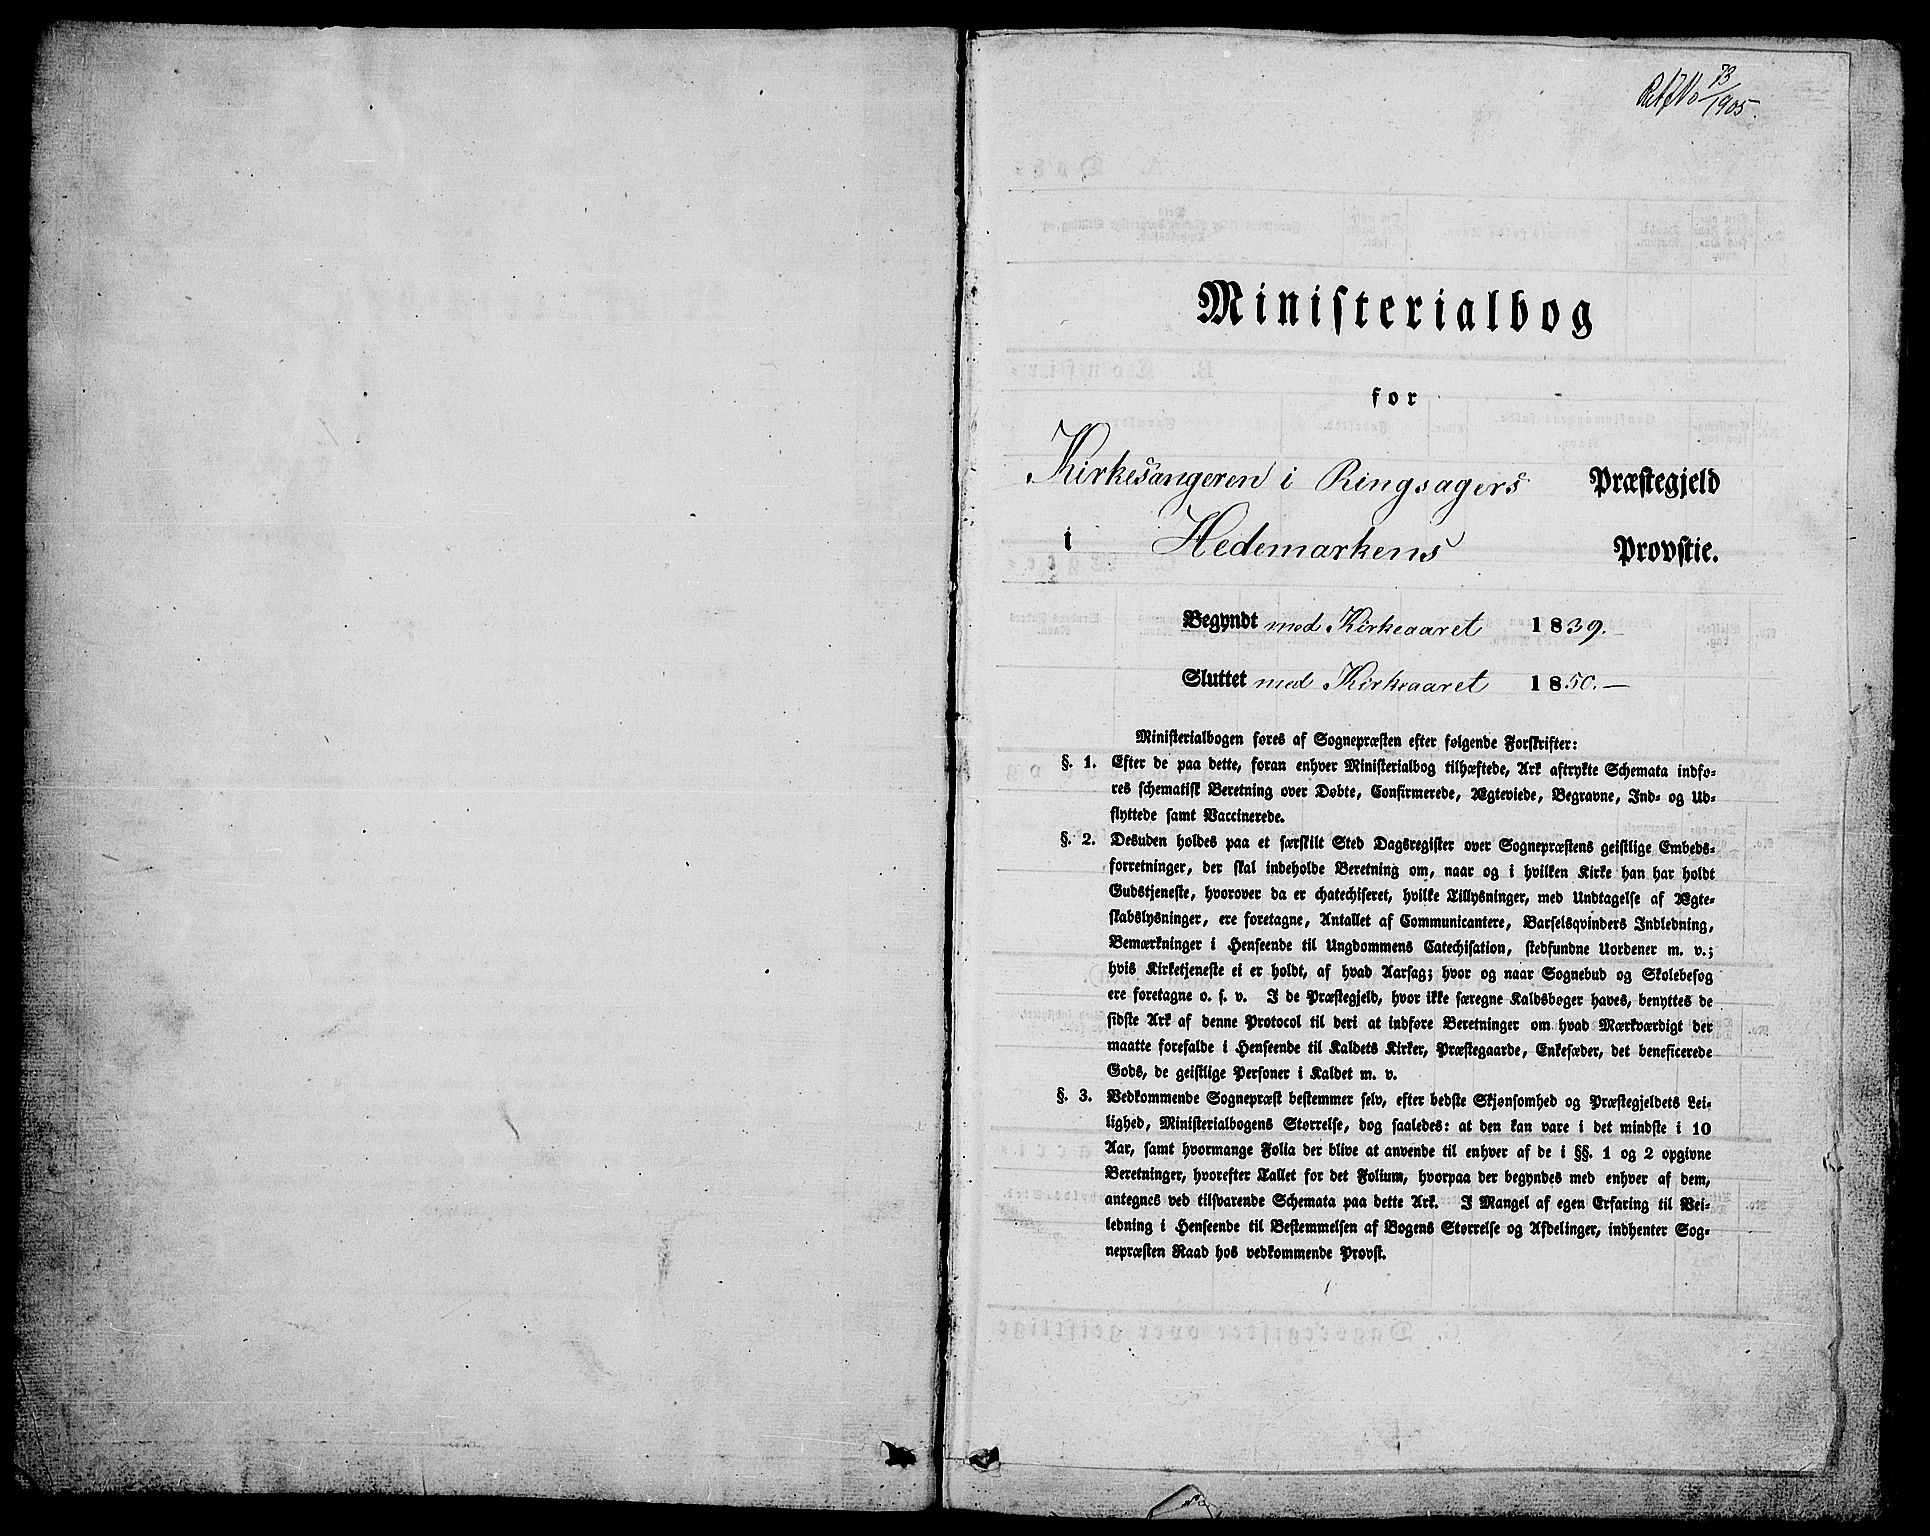 73/1905.
Ministerialbog
for
Kirkesangeren i Ringsagers Præstegjeld
i Hedemarkens Provstie.
Begyndt med Kirkeaaret 1839.
Sluttet med Kirkeaaret 1850.
Ministerialbogen føres af Sognepræsten efter følgende Forskrifter:
§. 1. Efter de paa dette, foran enhver Ministerialbog tilhæftede, Ark aftrykte Schemata indfø-
res schematisk Beretning over Døbte, Confirmerede, Ægteviede, Begravne, Ind- og Ud-
flyttede samt Vaccinerede.
§. 2. Desuden holdes paa et særskilt Sted Dagsregister over Sognepræstens geistlige Embeds-
forretninger, der skal indeholde Beretning om, naar og i hvilken Kirke han har holdt
Gudstjeneste, hvorover da er chatechiseret, hvilke Tillysninger, med Undtagelse af Ægte-
skabslysninger, ere foretagne, Antallet af Communicantere, Barselsqvinders Indledning,
Bemærkninger i Henseende til Ungdommens Catechisation, stedfundne Uordener m. v.;
hvis Kirketjeneste ei er holdt, af hvad Aarsag; hvor og naar Sognebud og Skolebesøg
ere foretagne o. s. v. I de Præstegjeld, hvor ikke særegne Kaldsbøger haves, benyttes de
sidste Ark af denne Protocol til deri at indføre Beretninger om hvad Mærkværdigt der
maatte forefalde i Henseende til Kaldets Kirker, Præstegaarde, Enkesæder, det beneficerede
Gods, de geistlige Personer i Kaldet m. v.
§. 3. Vedkommende Sognepræst bestemmer selv, efter bedste Skjønsomhed og Præstegjeldets Lei-
lighed, Ministerialbogens Størrelse, dog saaledes: at den kan vare i det mindste i 10
Aar, samt hvormange Folia der blive at anvende til enhver af de i §§. 1 og 2 opgivne
Beretninger, hvorefter Tallet for det Folium, hvorpaa der begyndes med enhver af dem,
antegnes ved tilsvarende Schemata paa dette Ark. I Mangel af egen Erfaring til Vei-
ledning i Henseende til Bestemmelsen af Bogens Størrelse og Afdelinger, indhenter Sog-
nepræsten Raad hos vedkommende Provst.